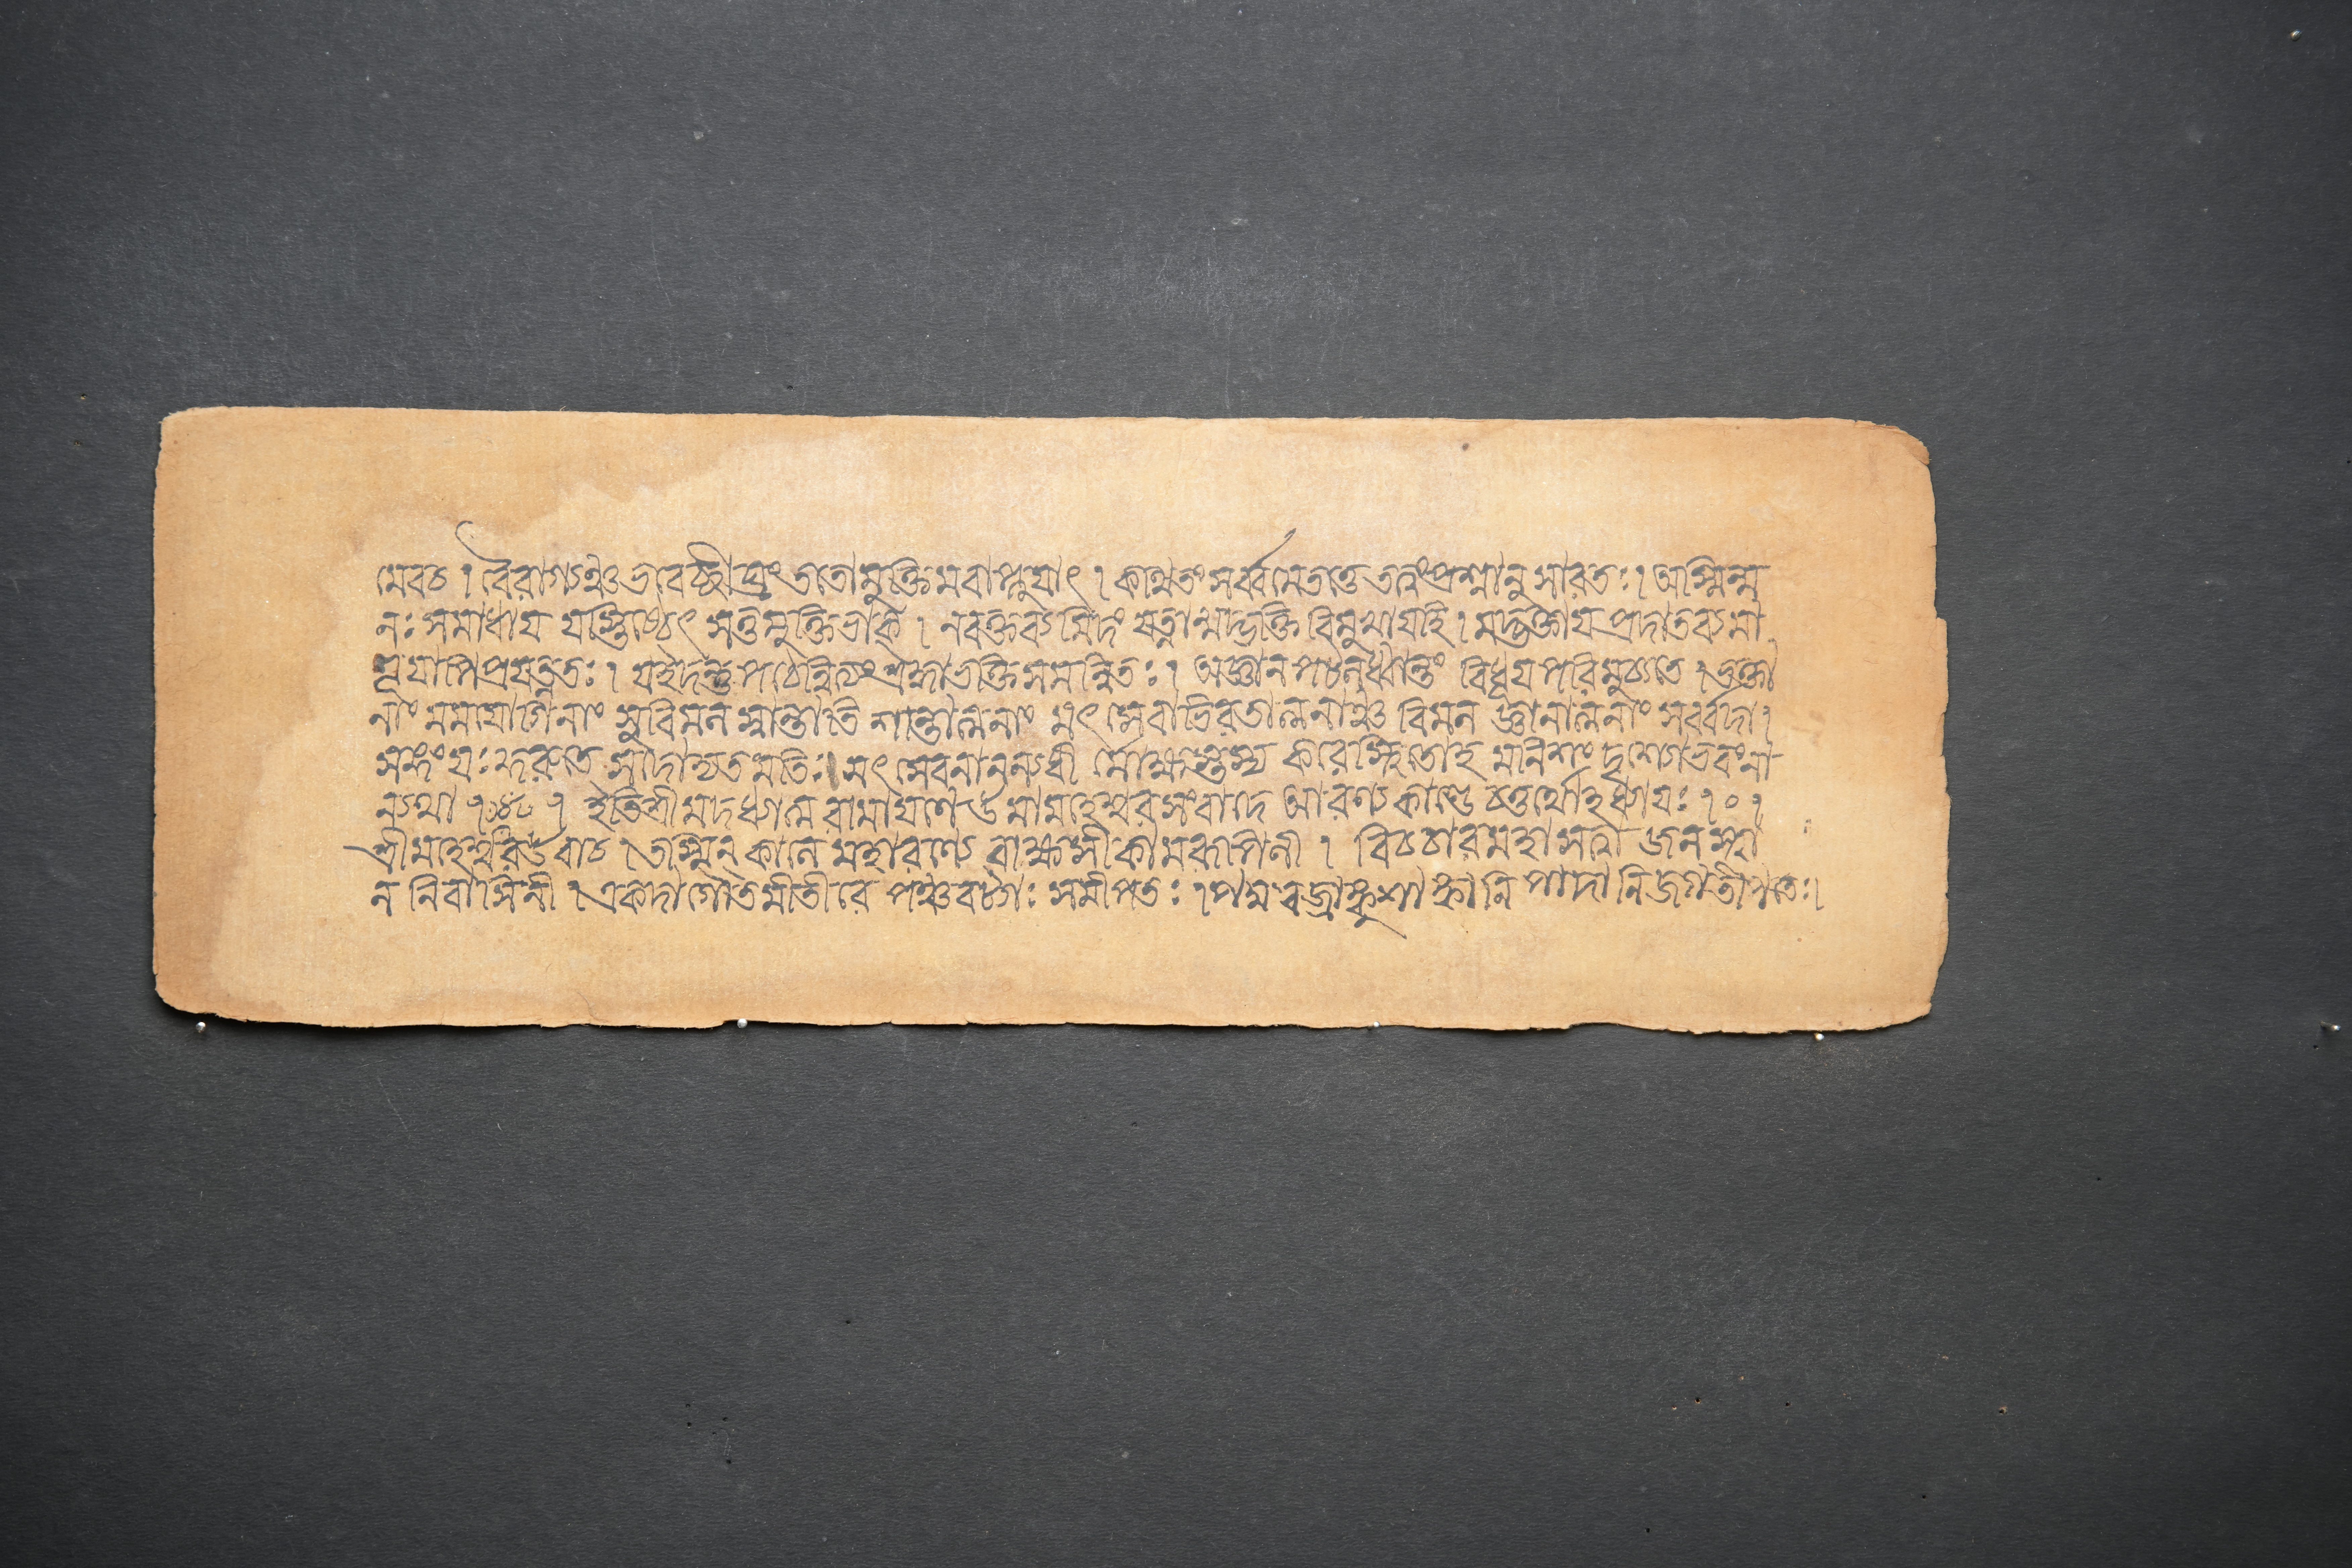 মেবচ । বৈরাগ্যঞ্চভবেচ্ছীঘ্রং ততোমুক্তিমবাপ্নুয়াৎ । কথিতং সর্ব্বমেতত্তে তবপ্রশ্নানুসারতঃ । অস্মিন্ম
নঃ সমাধায় যস্তিষ্ঠেৎ সতুমুক্তিভাক্ । নবক্তব্যমিদং যত্নান্মদ্ভক্তি বিমুখায়হি । মদ্ভক্তায়প্রদাতব্যমা
হূয়াপিপ্রযত্নতঃ । যইদন্তুপঠেন্নিত্যংশ্রদ্ধাভক্তিসমন্বিতঃ । অজ্ঞানপটলধ্বান্তং বিধূয়পরিমুচ্যতে । ভক্তা
নাং মমযোগিনাং সুবিমলস্বান্তাতিশান্তাত্মনাং মৎসেবাভিরতাত্মনাঞ্চ বিমলজ্ঞানাত্মনাং সর্ব্বদা ।
সঙ্গং যঃ কুরুতে সদোদ্যতমতিঃ । মৎসেবনানন্যধী র্মোক্ষস্তস্য করেস্থিতোহ মনিশং দৃশ্যোভবেনা
ন্যথা । ইতিশ্রীমদধ্যাত্মরামায়ণে উমামহেশ্বরসংবাদে আরণ্যকাণ্ডে চতুর্থোহধ্যায়ঃ । ০ ।
শ্রীমহেশ্বরউবাচ । তস্মিন্ কালে মহারণ্যে রাক্ষসীকামরূপিনী । বিচচারমহাসত্বা জনস্থা
ন নিবাসিনী । একদাগৌতমীতীরে পঞ্চবট্যাঃ সমীপতঃ । পদ্মবজ্রাঙ্কুশাঙ্কানি পদানি জগতীপতেঃ ।